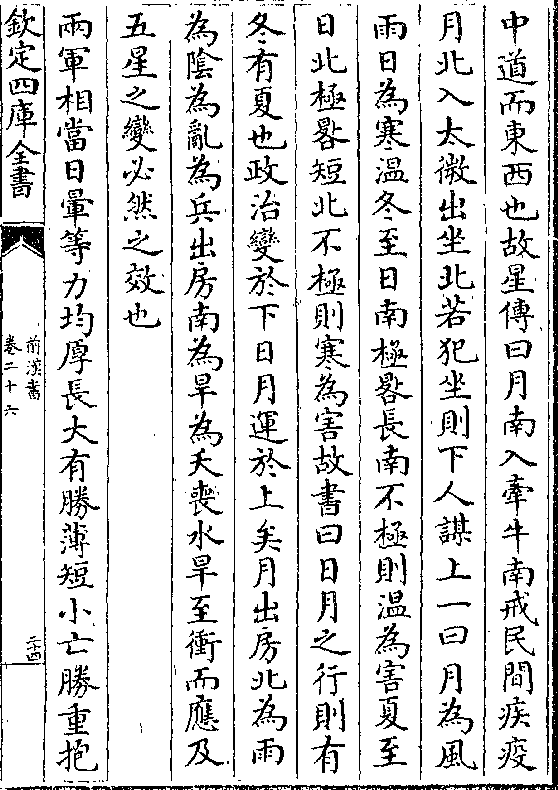 中道而東西也故星傳曰月南入牽牛南戒民間疾疫
月北入太微出坐北若犯坐則下人謀上一曰月為風
雨日為寒温冬至日南極晷長南不極則温為害夏至
日北極晷短北不極則寒為害故書曰日月之行則有
冬有夏也政治變於下日月運於上矣月出房北為雨
為陰為亂為兵出房南為旱為夭喪水旱至衝而應及
五星之變必然之效也
兩軍相當日暈等力均厚長大有勝薄短小亡勝重抱
欽定四庫全書
前漢書
卷二十六
三十四